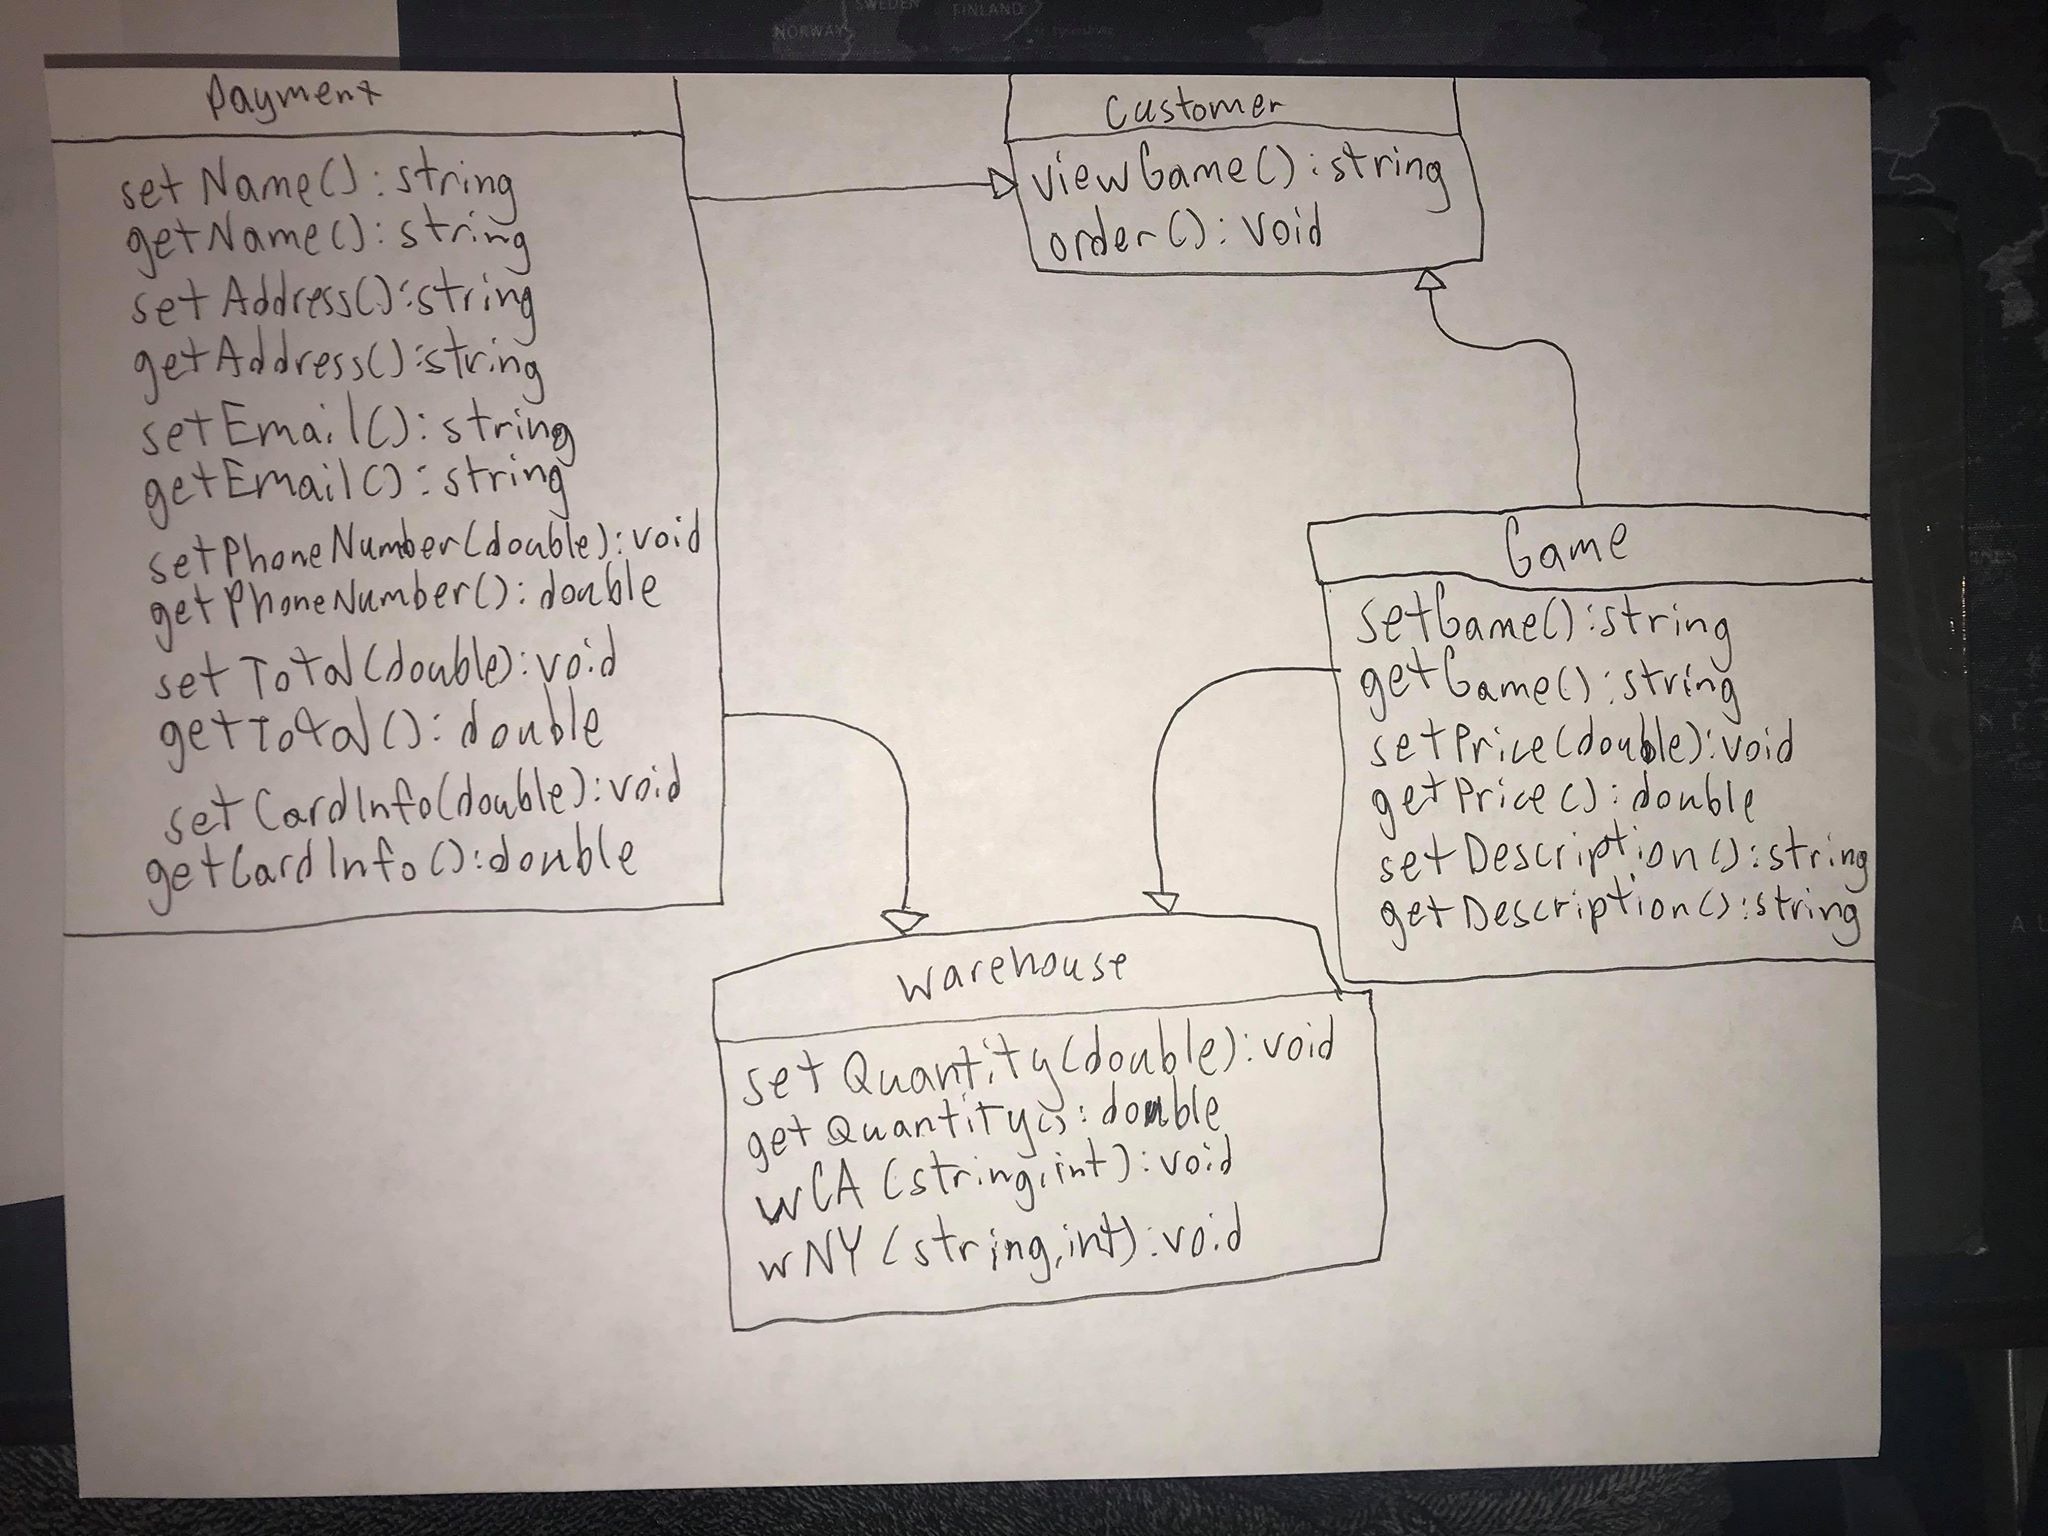 NORWAY
SWEDEN
FINLAND
Payment
setName():string
getName():string
setAddress():string
getAddress():string
setEmail():string
getEmail():string
setPhoneNumber(double):void
getPhoneNumber():double
setTotal(double):void
getTotal():double
setCardInfo(double):void
getCardInfo():double
Customer
viewGame():string
order():void
Game
setGame():string
getGame():string
setPrice(double):void
getPrice():double
setDescription():string
getDescription():string
Warehouse
setQuantity(double):void
getQuantity():double
wCA(string,int):void
wNY(string,int):void